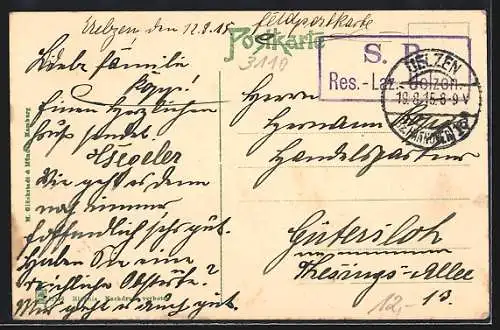 Uelzen den 12.8.15
Feldpostkarte
Postkarte
3110
S. B.
Res.-Laz. Uelzen.
UELZEN
19.8.15.8-9V
(HANNOVER)
Liebe Familie
Einen herzlichen
Gruß sendet
Wie geht es denn
noch immer,
hoffentlich sehr gut.
Haben Sie eine
reichliche Obsternte?
Mir geht es auch gut.
Herrn
Hermann
Handelsgärtner
Gütersloh
Allee
13.
12,-
M. Glückstadt & Münden, Hamburg
Nachdruck verboten